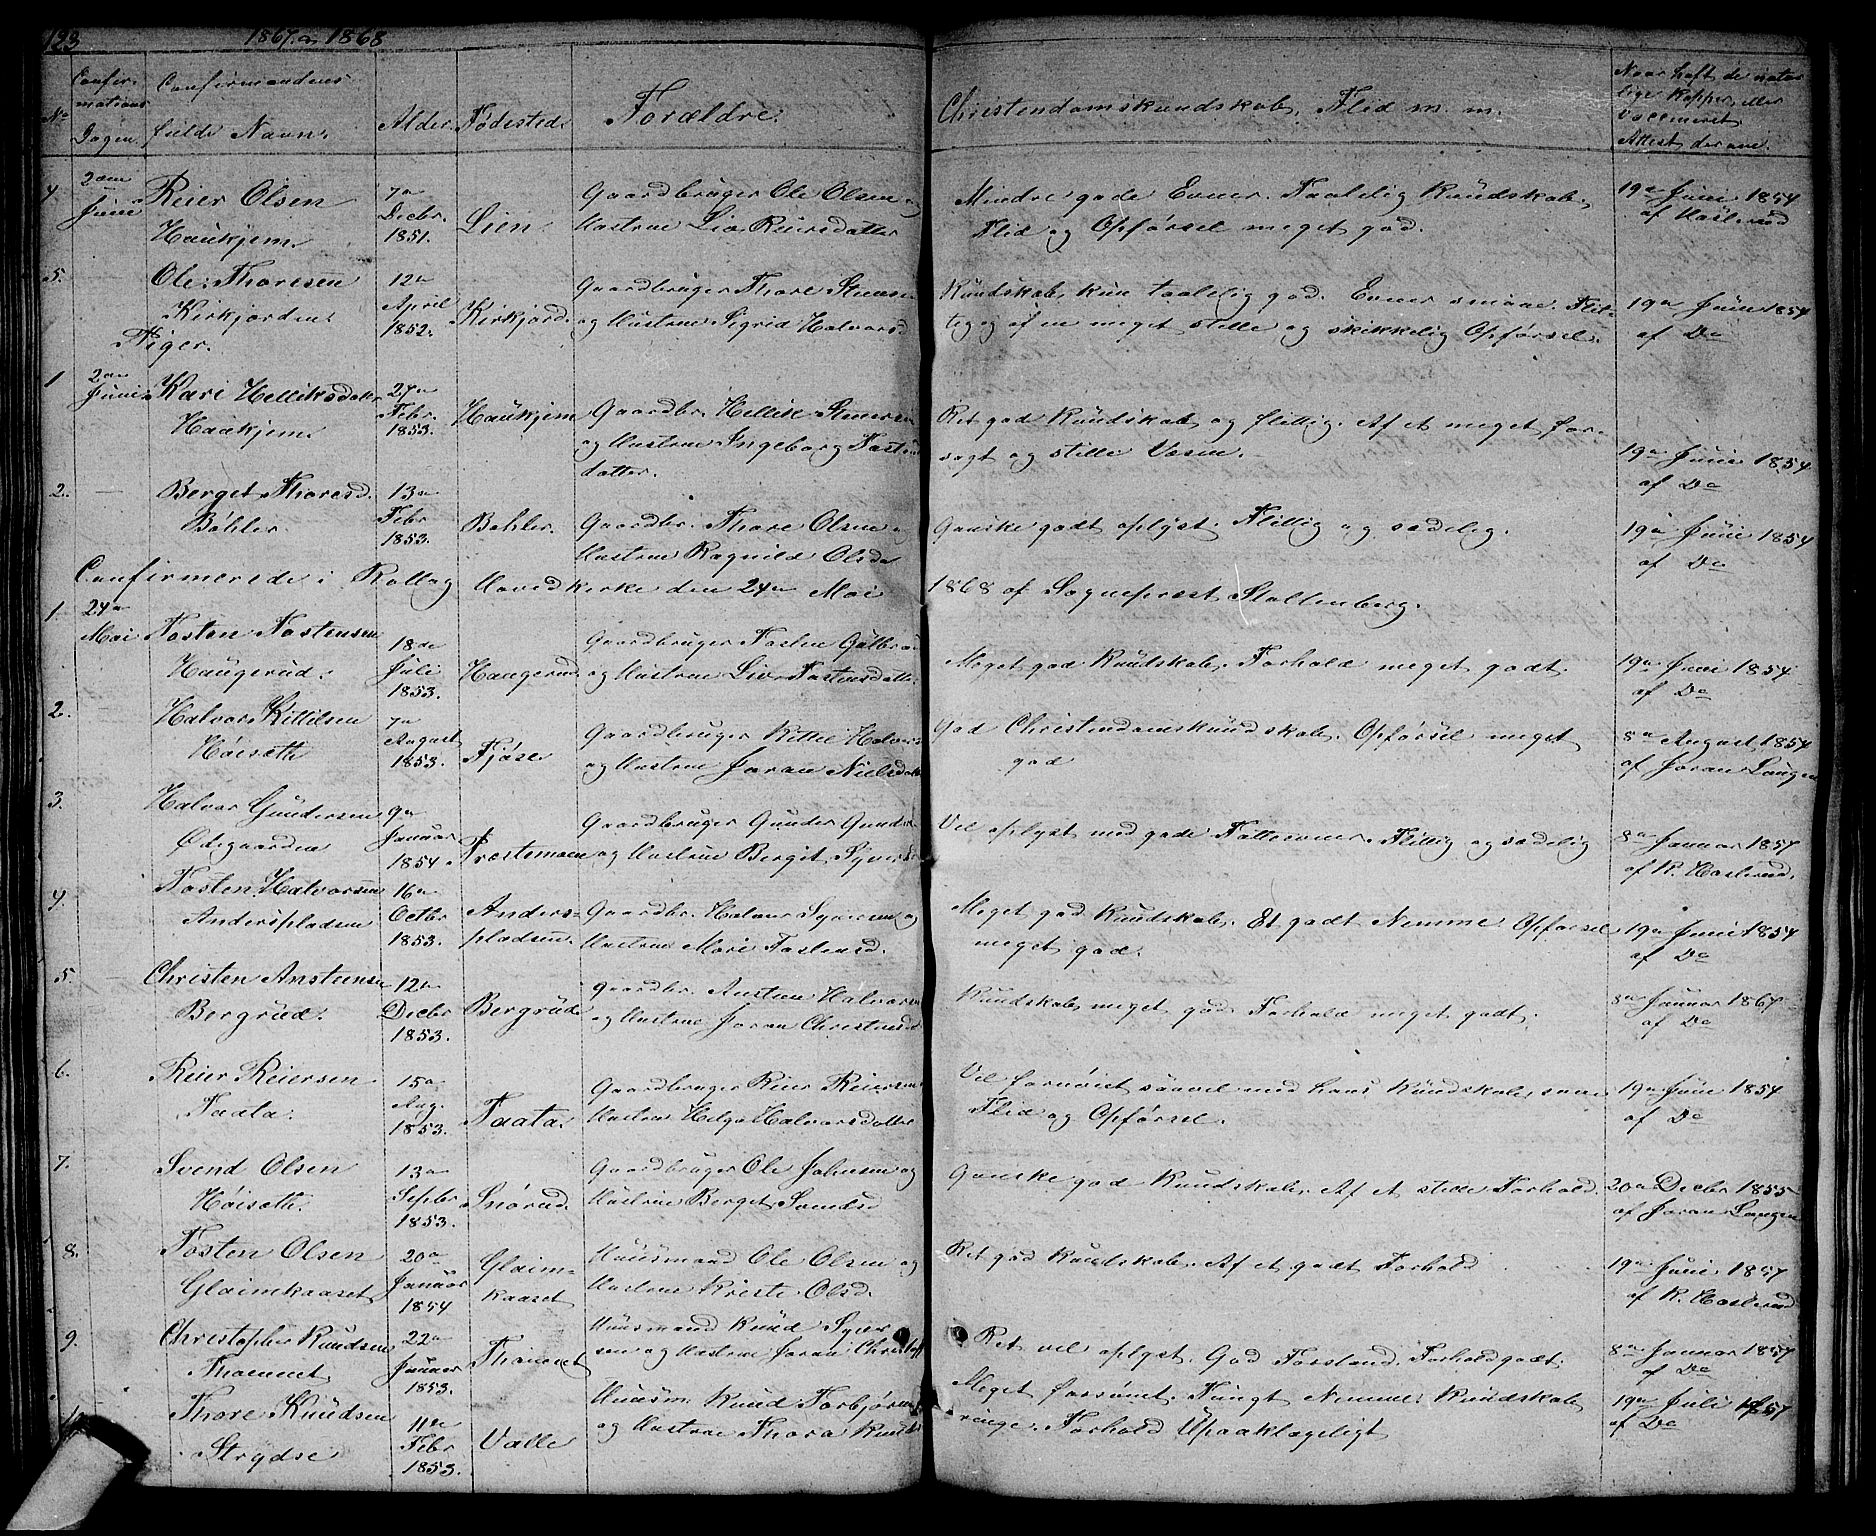 123 1867 og 1868
No Confirmations Dagen. Confirmandens fulde Navn. Alder. Fødested. Forældre. Christendomskundskab, Flid m. m. Naar haft de naturlige Kopper, eller vaccineret. Attest derom.
4 2den Juni Reier Olsen Haukjem. 7de Decbr. 1851. Lien. Gaardbruger Ole Olsen og Hustrue Liv Reiersdatter Mindre gode Evner. Taalelig Kundskab, Flid og Opførsel meget god. 19de Juni 1854 af Haslerud
5. Ole Thoresen Kirkjorden. 12te April 1852. Kirkjord. Gaardbruger Thore Steensen og Hustrue Sigrid Halvorsd. Kundskab kun taalelig god. Evner smaae. Flittig og af en meget stille og skikkelig Opførsel. 19de Juni 1854 af Do
Piger.
1 2den Juni Kari Helliksdatter Haukjem. 24de Febr. 1853. Haukjem Gaardbr. Hellik Steensen og Hustrue Ingeborg Tostensdatter. Ret god Kundskab og flittig. Af et meget forsagt og stille Væsen. 19de Juni 1854 af Do
2. Berget Thoresd. Bøhler. 13de Febr 1853. Bøhler. Gaardbr. Thore Olsen og Hustrue Ragnild Olsdr Ganske godt oplyst. Flittig og sædelig. 19de Juni 1854 af Do
Confirmerede i Rollag Hovedkirke den 24de Mai 1868 af Sognepræst Stoltenberg.
1. 24de Mai Tosten Tostensen Haugerud. 18de Juli 1853. Haugerud Gaardbruger Tosten Gulbrands og Hustrue Liv Tostensdatter Meget god Kundskab. Forhold meget godt. 19de Juni 1854 af Do
2. Halvor Kittilsen Høisæth 7de August 1853. Fjøse Gaardbruger Kittil Halvors og Hustrue Jøran Nielsdatter God Christendomskundskab. Opførsel meget god 8de August 1854 af Jøran Langen
3. Halvor Gundersen Ødegaarden 9de Januar 1854. Præstemoen Gaardbruger Gunder Gunders og Hustrue Bergit Syversd Vel oplyst med gode Fatteevner. Flittig og sædelig 8de Januar 1857 af K. Haslerud.
4. Tosten Halvorsen Anderspladsen 16de Octbr 1853. Anderspladsen. Gaardbr. Halvor Syversen og Hustrue Mari Tostensd. Meget god Kundskab. Et godt Nemme. Opførsel meget god. 19de Juni 1854 af Do
5. Christen Anstensen Bergrud. 12te Decbr 1853. Bergrud Gaardbr. Austen Halvorsen og Hustrue Jøran Christensd Kundskab meget god. Forhold meget godt. 8de Januar 1867 af Do
6. Reier Reiersen Taata. 15de Aug. 1853. Taata. Gaardbruger Reier Reiersen Hustrue Helga Halvorsdatter Vel fornøiet saavel med hans Kundskab, som Flid og Opførsel. 19de Juni 1854 af Do
7. Svend Olsen Høisæth. 13de Septbr 1853. Snørud. Gaardbruger Ole Johnsen og Hustrue Berget Svendsd Ganske god Kundskab. Af et stille Forhold. 20de Decbr 1855 af Jøran Langen
8. Tosten Olsen Glaimkaaset 20de Januar 1854 Glaimkaaset Huusmand Ole Olsen og Hustrue Kristi Olsd. Ret god Kundskab. Af et godt Forhold 19de Juni 1857 af K. Haslerud
9. Christopher Knudsen Thoemet 22de Januar 1853. Thoemet Huusmand Knud Syversen og Hustrue Jøran Christoff Ret vel oplyst. God Forstand. Forhold godt. 8de Januar 1857 af Do
10 Thore Knudsen Strydse 11te Febr 1853. Valle Huusm. Knud Torbjørns og Hustrue Thora Knuds Meget forsømt. Tungt Nemme. Kundskab ringe. Forhold Upaaklageligt 19de Juli 1857 af Do